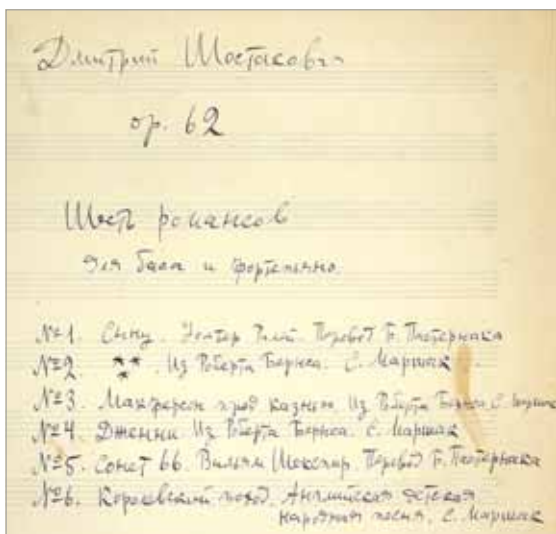 Дмитрий Шостакович
ор. 62
Шесть романсов
для баса и фортепьяно.
№1. Сыну. Уолтер Рэлей. Перевод Б. Пастернака
№2 ***. Из Роберта Бернса. С. Маршак
№3. Макферсон перед казнью. Из Роберта Бернса. С. Маршак
№4. Дженни. Из Роберта Бернса. С. Маршак
№5. Сонет 66. Вильям Шекспир. Перевод Б. Пастернака
№6. Королевский поход. Английская детская
народная песня. С. Маршак